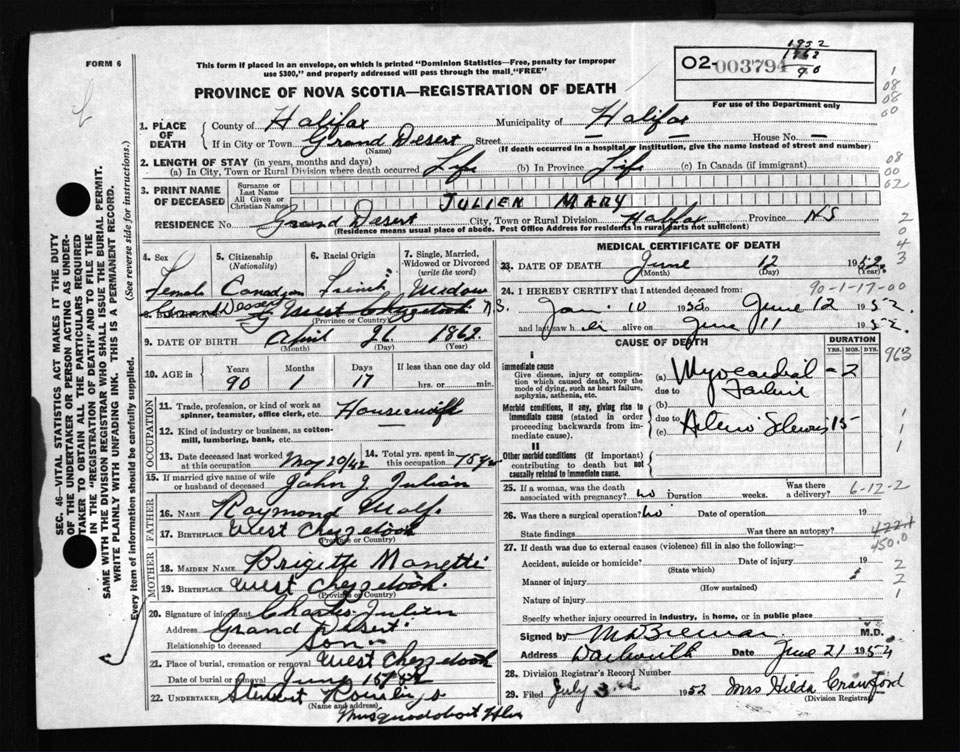 FORM 6
This form if placed in an envelope, on which is printed "Dominion Statistics—Free, penalty for improper
use $300," and properly addressed will pass through the mail "FREE"
1952
1862
90
O2-003794
For use of the Department only
PROVINCE OF NOVA SCOTIA—REGISTRATION OF DEATH
1. PLACE OF DEATH
County of Halifax Municipality of Halifax
If in City or Town Grand Desert Street — House No. —
(Name) (If death occurred in a hospital or institution, give the name instead of street and number)
2. LENGTH OF STAY (in years, months and days)
(a) In City, Town or Rural Division where death occurred Life (b) In Province Life (c) In Canada (if immigrant)
3. PRINT NAME OF DECEASED
Surname or Last Name
All Given or Christian Names
JULIEN MARY
RESIDENCE No. Grand Desert City, Town or Rural Division Halifax Province NS
(Residence means usual place of abode. Post Office Address for residents in rural parts not sufficient)
4. Sex 5. Citizenship (Nationality) 6. Racial Origin 7. Single, Married, Widowed or Divorced (write the word)
Female Canadian French Widow
Grand Desert West Chezzetcook N.S.
(Province or Country)
9. DATE OF BIRTH April 26 1862
(Month) (Day) (Year)
10. AGE in Years Months Days If less than one day old
90 1 17 hrs. or min.
OCCUPATION
11. Trade, profession, or kind of work as spinner, teamster, office clerk, etc. Housewife
12. Kind of industry or business, as cotton-mill, lumbering, bank, etc.
13. Date deceased last worked at this occupation May 20/42 14. Total yrs. spent in this occupation 75 yrs
15. If married give name of wife or husband of deceased John J Julian
FATHER
16. Name Raymond Wolf.
17. Birthplace West Chezzetcook
(Province or Country)
MOTHER
18. Maiden Name Brigette Manette
19. Birthplace West Chezzetcook.
(Province or Country)
20. Signature of informant Charles Julien
Address Grand Desert
Relationship to deceased Son
21. Place of burial, cremation or removal West Chezzetcook
Date of burial or removal June 15
22. Undertaker
(Name and address)
Musquodoboit Hbr
MEDICAL CERTIFICATE OF DEATH
23. DATE OF DEATH June 12 1952
(Month) (Day) (Year)
24. I HEREBY CERTIFY that I attended deceased from: 90-1-17-00
Jan 10 1950 to June 12 1952
and last saw her alive on June 11 1952
CAUSE OF DEATH DURATION
YRS. MOS. DYS.
963
I
Immediate cause
Give disease, injury or complication which caused death, NOT the mode of dying, such as heart failure, asphyxia, asthenia, etc.
(a) Myocardial - 2
due to Failure
Morbid conditions, if any, giving rise to immediate cause (stated in order proceeding backwards from immediate cause).
(b)
due to
(c) Arterio Sclerosis 15
II
Other morbid conditions (if important) contributing to death but not causally related to immediate cause.
25. If a woman, was the death associated with pregnancy? no Duration weeks. Was there a delivery? 6-12-2
26. Was there a surgical operation? no Date of operation 19
State findings Was there an autopsy?
4221
450.0
27. If death was due to external causes (violence) fill in also the following:—
Accident, suicide or homicide? Date of injury 19
(State which)
Manner of injury
(How sustained)
Nature of injury
Specify whether injury occurred in industry, in home, or in public place
Signed by M.D.
Address Date June 21 1952
28. Division Registrar's Record Number
29. Filed July 3rd 1952 Mrs Hilda Crawford
(Division Registrar)
SEC. 46—VITAL STATISTICS ACT MAKES IT THE DUTY
OF THE UNDERTAKER OR PERSON ACTING AS UNDER-
TAKER TO OBTAIN ALL THE PARTICULARS REQUIRED
IN THE "REGISTRATION OF DEATH" AND TO FILE THE
SAME WITH THE DIVISION REGISTRAR WHO SHALL ISSUE THE BURIAL PERMIT.
WRITE PLAINLY WITH UNFADING INK. THIS IS A PERMANENT RECORD.
Every item of information should be carefully supplied. (See reverse side for instructions.)
1
08
00
08
00
02
2
0
4
3
1
1
1
2
2
1